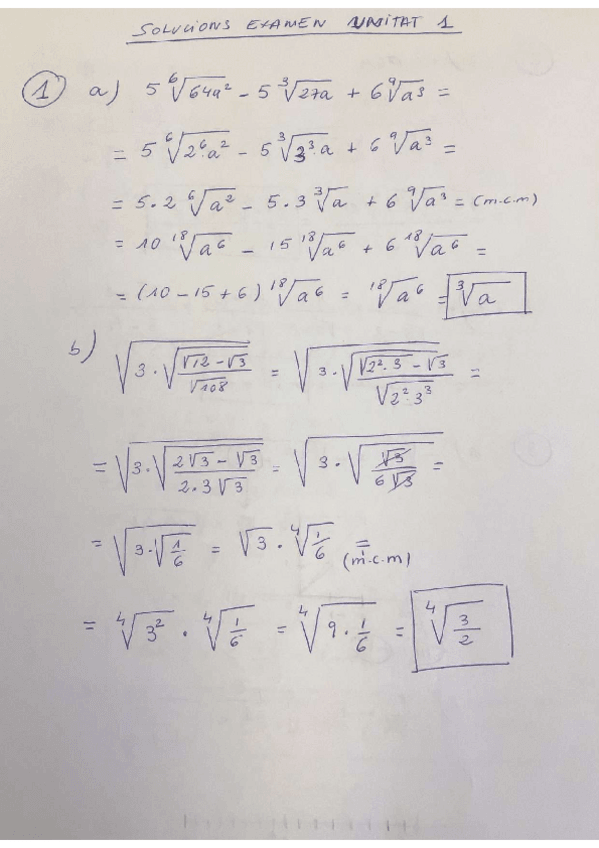 SOLUCIONS EXAMEN UNITAT 1
1 a) 5 ⁶√(64a²) - 5 ³√(27a) + 6 ⁹√(a³) =
= 5 ⁶√(2⁶·a²) - 5 ³√(3³·a) + 6 ⁹√(a³) =
= 5·2 ⁶√(a²) - 5·3 ³√a + 6 ⁹√(a³) = (m.c.m)
= 10 ¹⁸√(a⁶) - 15 ¹⁸√(a⁶) + 6 ¹⁸√(a⁶) =
= (10 - 15 + 6) ¹⁸√(a⁶) = ¹⁸√(a⁶) = ³√a
b) √(3·√((√12 - √3)/√108)) = √(3·√((√(2²·3) - √3)/√(2²·3³))) =
= √(3·√((2√3 - √3)/(2·3√3))) = √(3·√(√3/(6√3))) =
= √(3·√(1/6)) = √3 · ⁴√(1/6) = (m.c.m)
= ⁴√(3²) · ⁴√(1/6) = ⁴√(9·1/6) = ⁴√(3/2)